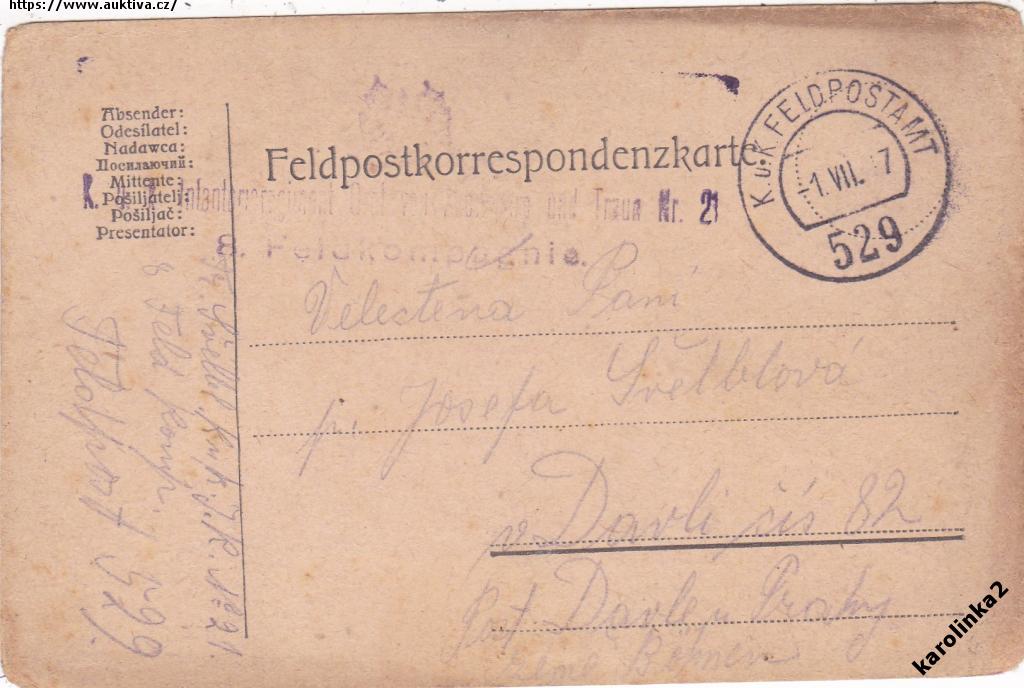 https://www.auktiva.cz/
Absender:
Odesílatel:
Nadawca:
Посилаючий:
Mittente:
Pošiljatelj:
Pošiljač:
Presentator:
Feldpostkorrespondenzkarte
K. u. K. FELDPOSTAMT
1. VII. 7
529
K. Infanterieregiment und Traun Nr. 21
8. Feldkompagnie.
Velectěná Paní
p. Josefa Švelblová
v Davli čís 82
Post Davle u Prahy
Böhmen
Švelbl, K. u. k. J. R. No 21.
8 Feld komp.
Feldpost 529.
karolinka2